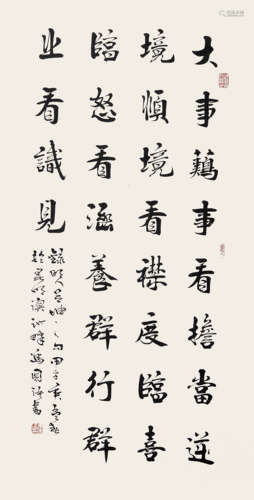 大事難事看擔當逆
境順境看襟度臨喜
臨怒看涵養群行群
止看識見
錄明人吕坤之句
於昆明滇池畔馮國語書